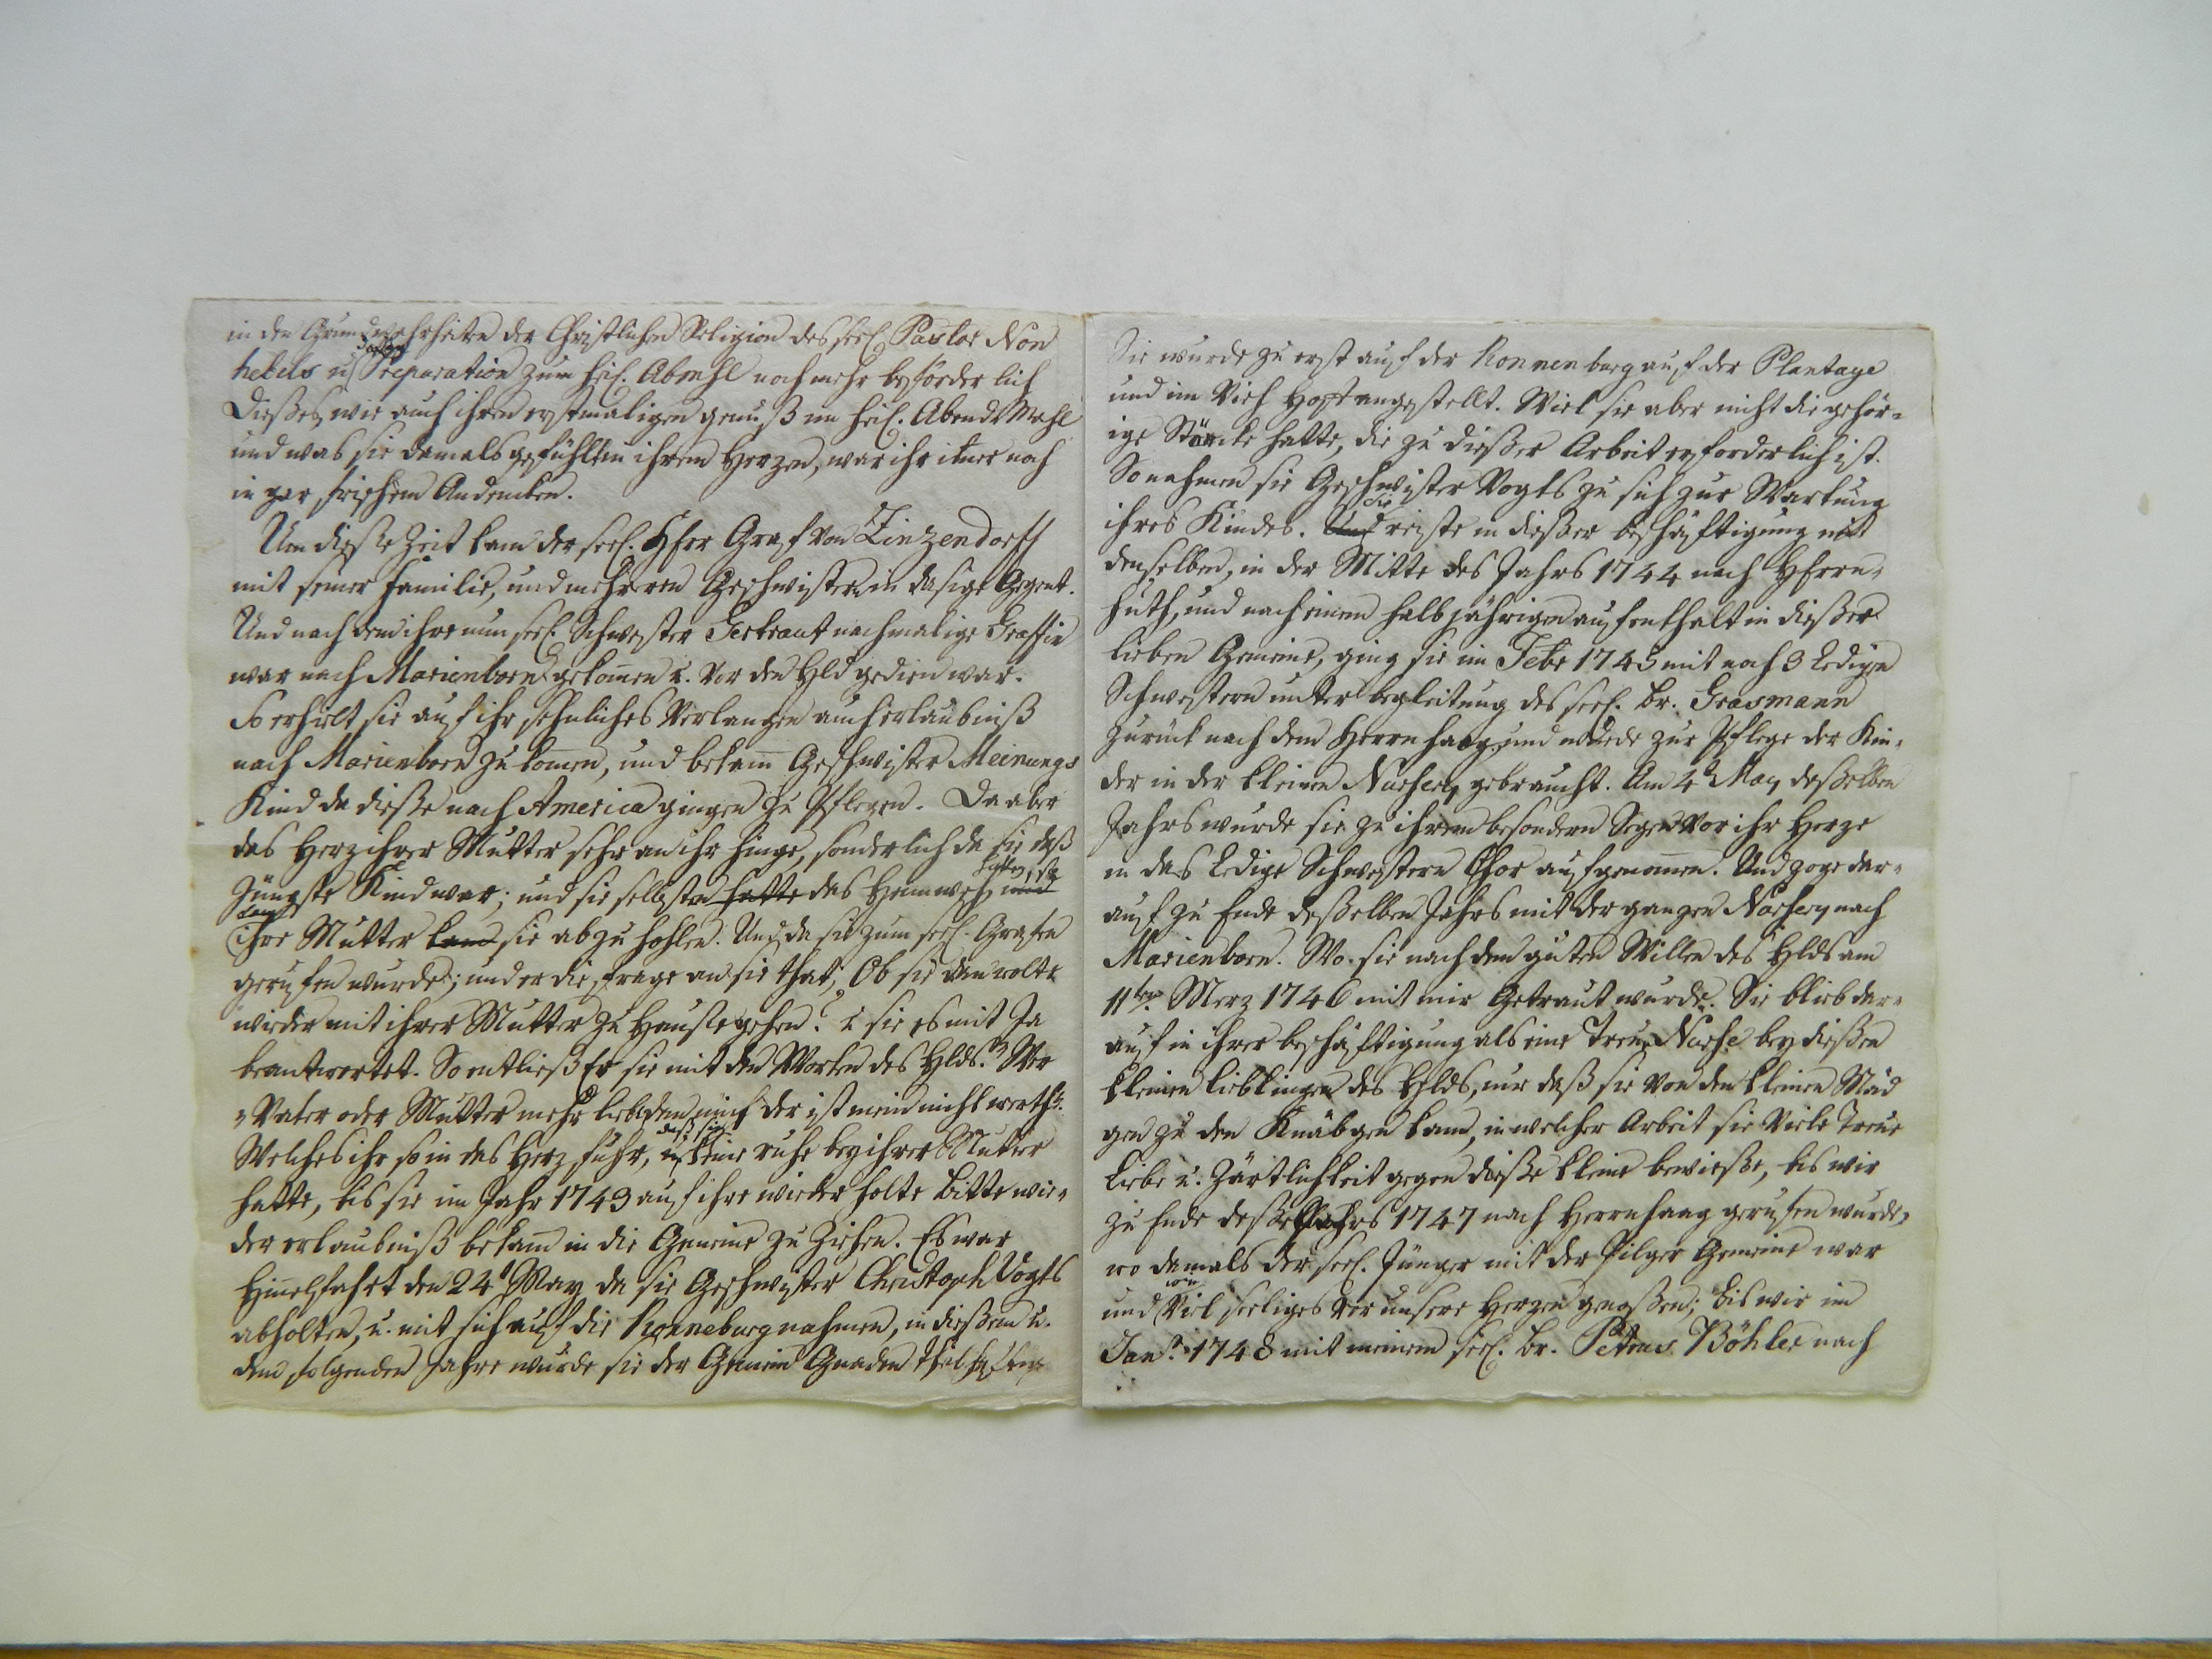 in den Grundwahrheiten der Christlichen Religion des seel. Pastor Non
hebels u. dessen Preparation zum heil. Abmhl noch mehr beförderlich
Dießes, wie auch ihren erstmaligen genuß im heil. Abend Mahl
und was sie damals gefühlt in ihrem Herzen, war ihr imer noch
in gar frischem Andencken.
Um diesse Zeit kam der seel. Hherr Graf von Zinzendorff
mit seiner Familie, und mehreren Geschwistern in dasige Gegent.
Und nach dem ihre nun seel. Schwester Gertraut nachmalige Graffin
war nach Marienborn gekomen u. vor den Hld gedien war.
So erhielt sie auf ihr sehnliches Verlangen auch erlaubniß
nach Marienborn zu komen, und bekam Geschwister Meinungs
Kind da diesse nach America gingen zu Pflegen. Da aber
das Herz ihrer Mutter sehr an ihr hinge, sonderlich da sie daß
Jüngste Kind war; und sie selbsten hatte das Heimweh, und
kam ihre Mutter kam sie abzuhohlen. Und da sie zum seel. Grafen
gerufen wurde; und er die frage an sie that; Ob sie den wolte
wieder mit ihrer Mutter zu Hausse gehen? u sie es mit Ja
beantwortet. So entließ Er sie mit den Worten des Hlds." Wer
"Vater oder Mutter mehr liebe den mich der ist mein nicht werth".
Welches ihr so in das Herz fuhr, daß sie keine ruhe bey ihrer Mutter
hatte, bis sie im Jahr 1743 auf ihre wieder holte Bitte wie-
der erlaubniß bekam in die Gemeine zu Ziehen. Es war
Himelfahrt den 24t May da sie Geschwister Christoph Vogts
abholten, u. mit sich auf die Ronneburg nahmen, in dießem u.
dem folgenden Jahre wurde sie der Gemein Gnaden theilhaftig
Sie wurde zu erst auf der Ronnenburg auf der Plantage
und im Vieh Hof angestellt. Wiel sie aber nicht die gehör-
ige Stärcke hatte, die zu dießer Arbeit erforderlich ist.
So nahmen sie Geschwister Vogts zu sich zur Wartung
ihres Kindes. Und Sie reiste in dießer beschäftigung mit
denselben, in der Mitte des Jahrs 1744 nach Hherrn-
huth, und nach einem halbjährigen aufenthalt in dießer
lieben Gemeine, ging sie im Febr 1745 mit noch 3 Ledigen
Schwestern unter begleitung des seel. Br. Grasmann
zurück nach dem Herrnhaag und wurde zur Pflege der Kin-
der in der kleinen Nursery gebraucht. Am 4t May desselben
Jahrs wurde sie zu ihrem besondern Segen vor ihr Herze
in das Ledige Schwestern Chor aufgenomen. Und zoge dar-
auf zu Ende desselben Jahrs mit der ganzen Nursery nach
Marienborn. Wo sie nach dem guten Willen des Hlds am
11ten Merz 1746 mit mir Getraut wurde. Sie blieb dar-
auf in ihrer beschäftigung als eine Treue Nurse bey dießen
kleinen lieblingen des Hlds, nur daß sie von den kleinen Mäd
gen zu den Knäbgen kam, in welcher Arbeit sie Viele Treue
Liebe u. Zärtlichkeit gegen diesse kleine bewiesse, bis wir
zu Ende desselb Jahrs 1747 nach Herrnhaag gerufen wurden,
wo damals der seel. Jünger mit der Pilger Gemeine war
und wir Viel seeliges vor unsere Herzen genoßen; bis wir im
Janr. 1748 mit meinem seel. Br. Petrus Böhler nach